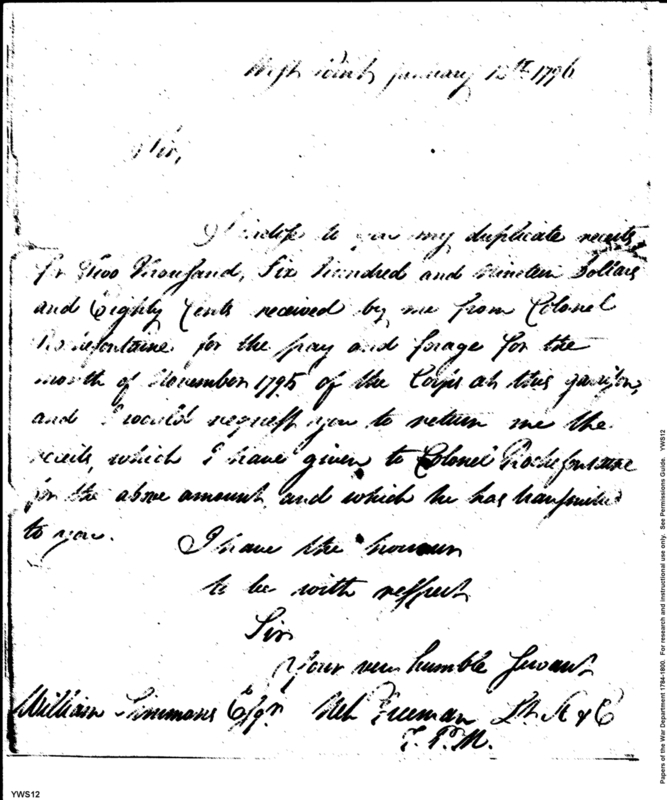 West Point January 12th 1796
Sir,
I inclose to you my duplicate receits
for Two Thousand, Six Hundred and Nineteen Dollars
and Eighty Cents received by me from Colonel
Rochefontaine for the pay and forage for the
month of November 1795 of the Corps at this garrison,
and I would request you to return me the
receits, which I have given to Colonel Rochefontaine
for the above amount and which he has transmitted
to you.
I have the honour
to be with respect
Sir
Your very humble Servant
William Simmons Esqr
Neh Freeman Lt A & E
P.M.
Papers of the War Department 1784-1800. For research and instructional use only. See Permissions Guide. YWS12
YWS12